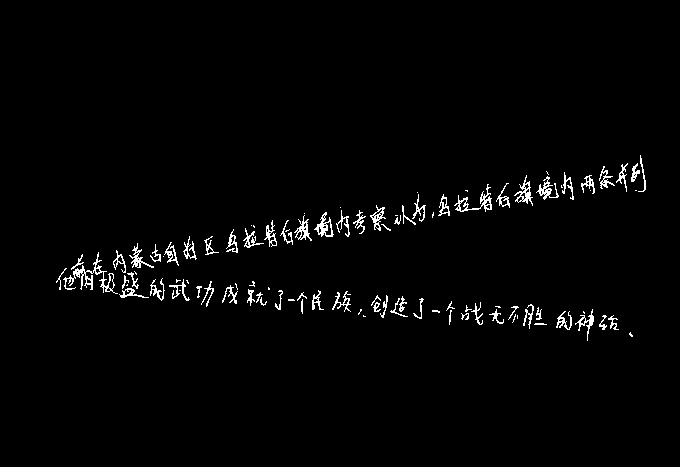 前在内蒙古自治区乌拉特后旗境内考察认为,乌拉特后旗境内两条并列
他们极盛的武功成就了一个民族,创造了一个战无不胜的神话、